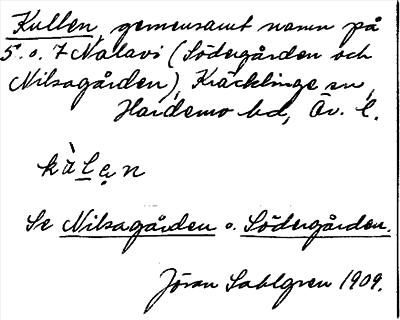 Kullen, gemensamt namn på
5. o. 7 Nalavi (Södergården och
Nilsagården), Kräcklinge sn,
Hardemo hd, Ör. l.
kàlen
Se Nilsagården o. Södergården.
Jöran Sahlgren 1909.